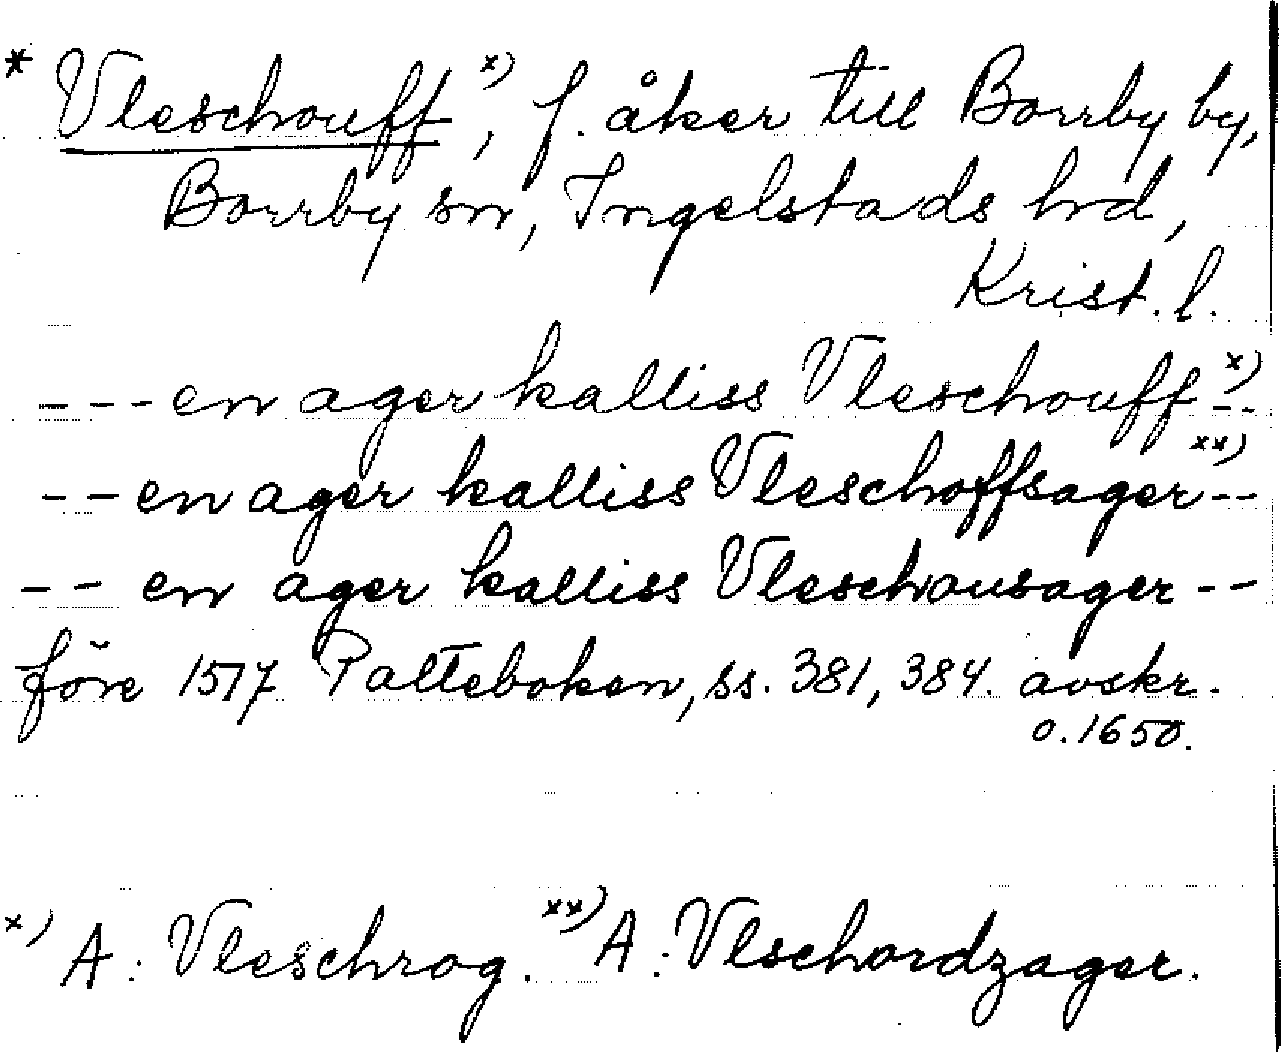 * Vleschouff x), f. åker till Borrby by,
Borrby sn, Ingelstads hrd,
Krist. l.
--- en ager kalliss Vleschouff x) --
-- en ager kalliss Vleschoffsager xx) --
-- en ager kalliss Vleschousager --
före 1517 Palteboken, ss. 381, 384. avskr.
o. 1650.
x) A: Vleschrog. xx) A: Vlschordzager.